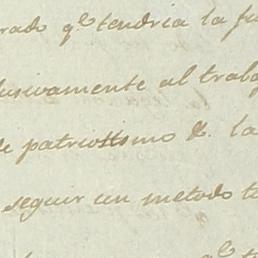 rado q.e tendria la fu
lusivamente al traba
de patriotismo &. la
seguir un metodo t